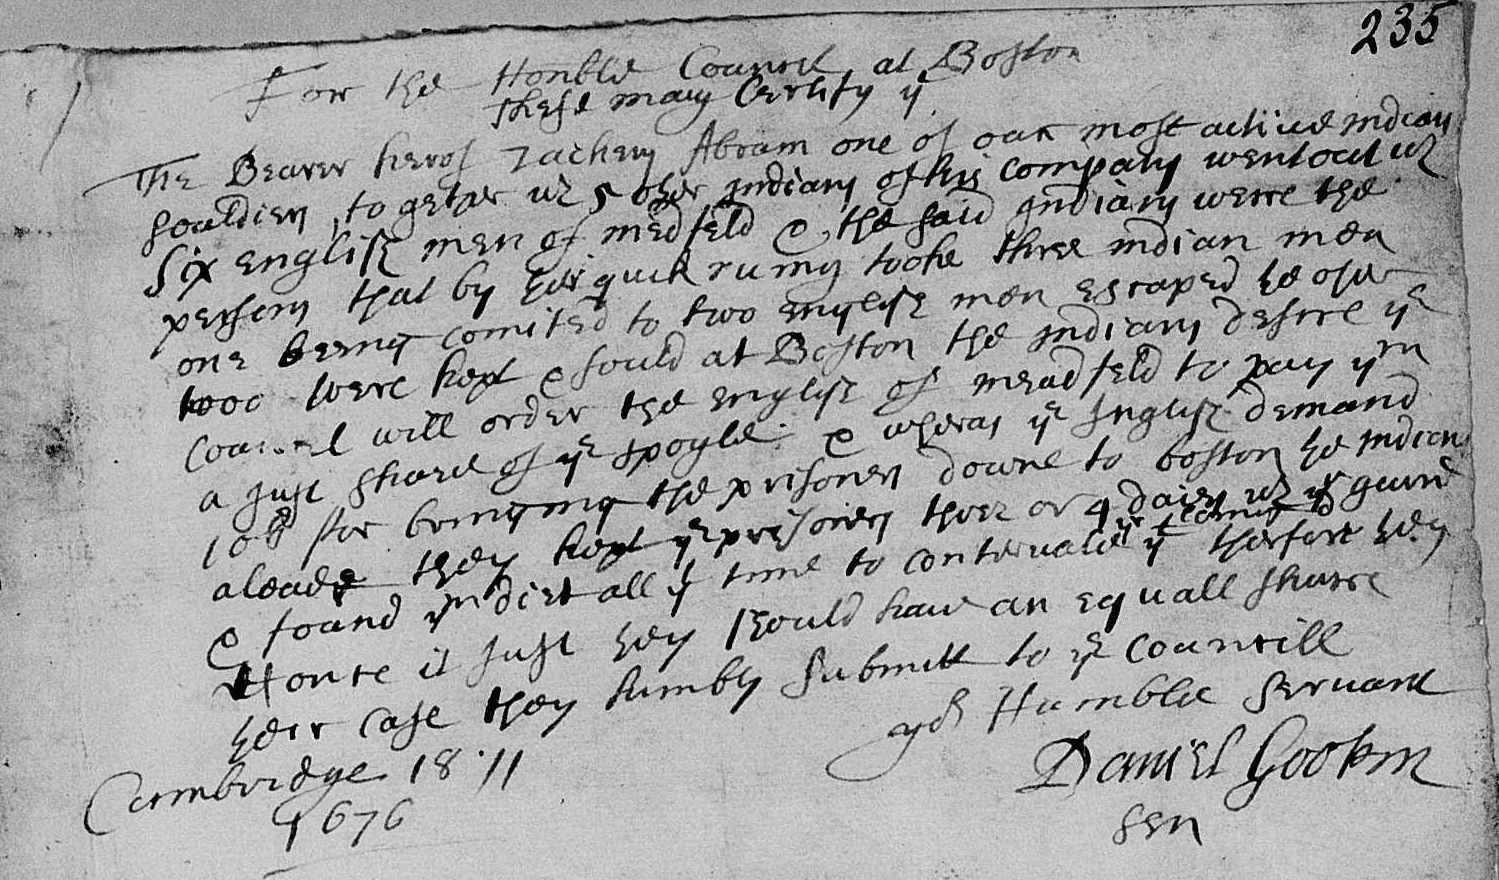 235
For the Honble Councill at Boston
these may Certify yt
The Bearer herof Zachery Abram one of our most actiue indian
souldiers, together wth 5 other indians of his company went out wth
six english men of medfeld & the said indians were the
persons that by their quick runing tooke three indian men
one being comited to two english men escaped the other
twoo were kept & sould at Boston the indians desire ye
councel will order the english of meadfeld to pay ym
a just share of ye spoyle & wheras ye Inglish demand
10s for bringing the prisoners downe to boston the indians
aleadg they kept ye prisoners three or 4 daies wth yr guard
& found ym diet all yt time to conteruale yt therfore they
thinke it just they should haue an equall share
their case they humbly submitt to ye councill
yor Humble servant
Daniel Gookin
sen
Cambridge 18 11
1676